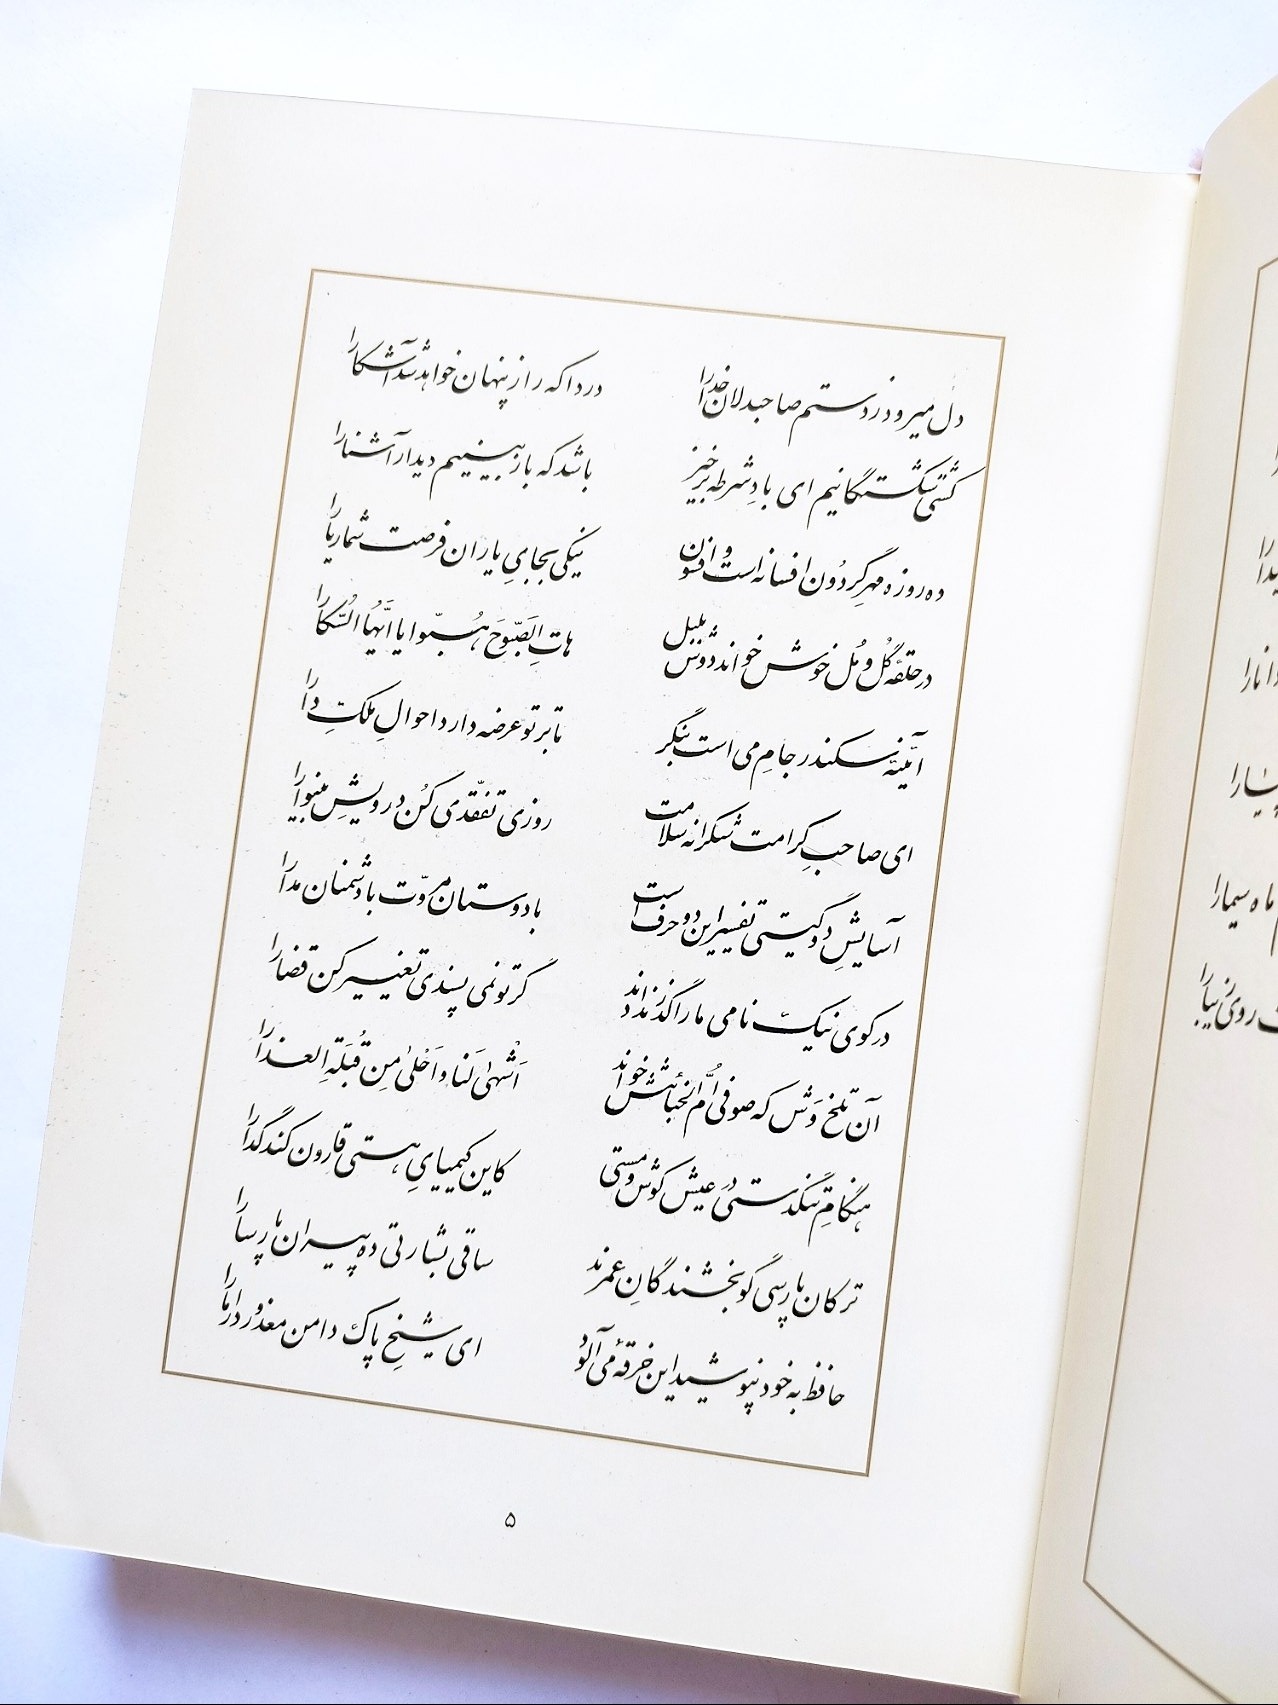 دل میرود ز دستم صاحبدلان خدا را درداکه راز پنهان خواهد شد آشکارا
کشتی شکستگانیم ای بادِ شرطه برخیز باشد که باز بینیم دیدار آشنا را
ده روزه مهرِ گردون افسانه است و افسون نیکی بجایِ یاران فرصت شمار یارا
در حلقهٔ گُل و مُل خوش خواند دوش بلبل هاتِ الصَّبوحَ هُبّوا یا ایَّهُا السُّکارا
آئینهٔ سکندر جامِ می است بنگر تا بر تو عرضه دارد احوالِ ملکتِ دارا
ای صاحبِ کرامت شکرانهٔ سلامت روزی تفقّدی کُن درویشِ بینوا را
آسایشِ دو گیتی تفسیر این دو حرف است با دوستان مروّت با دشمنان مدارا
در کوی نیک نامی ما را گذر ندادند گر تو نمی پسندی تغییر کن قضا را
آن تلخ وَش که صوفی اُمُّ الخبائثش خواند اَشْهیٰ لَنا و اَحْلیٰ مِن قُبلَةِ العذارا
هنگامِ تنگدستی در عیش کوش و مستی کاین کیمیایِ هستی قارون کند گدا را
ترکان پارسی گو بخشندگانِ عمرند ساقی بشارتی ده پیران پارسا را
حافظ به خود نپوشید این خرقهٔ می آلود ای شیخِ پاک دامن معذور دار ما را
۵